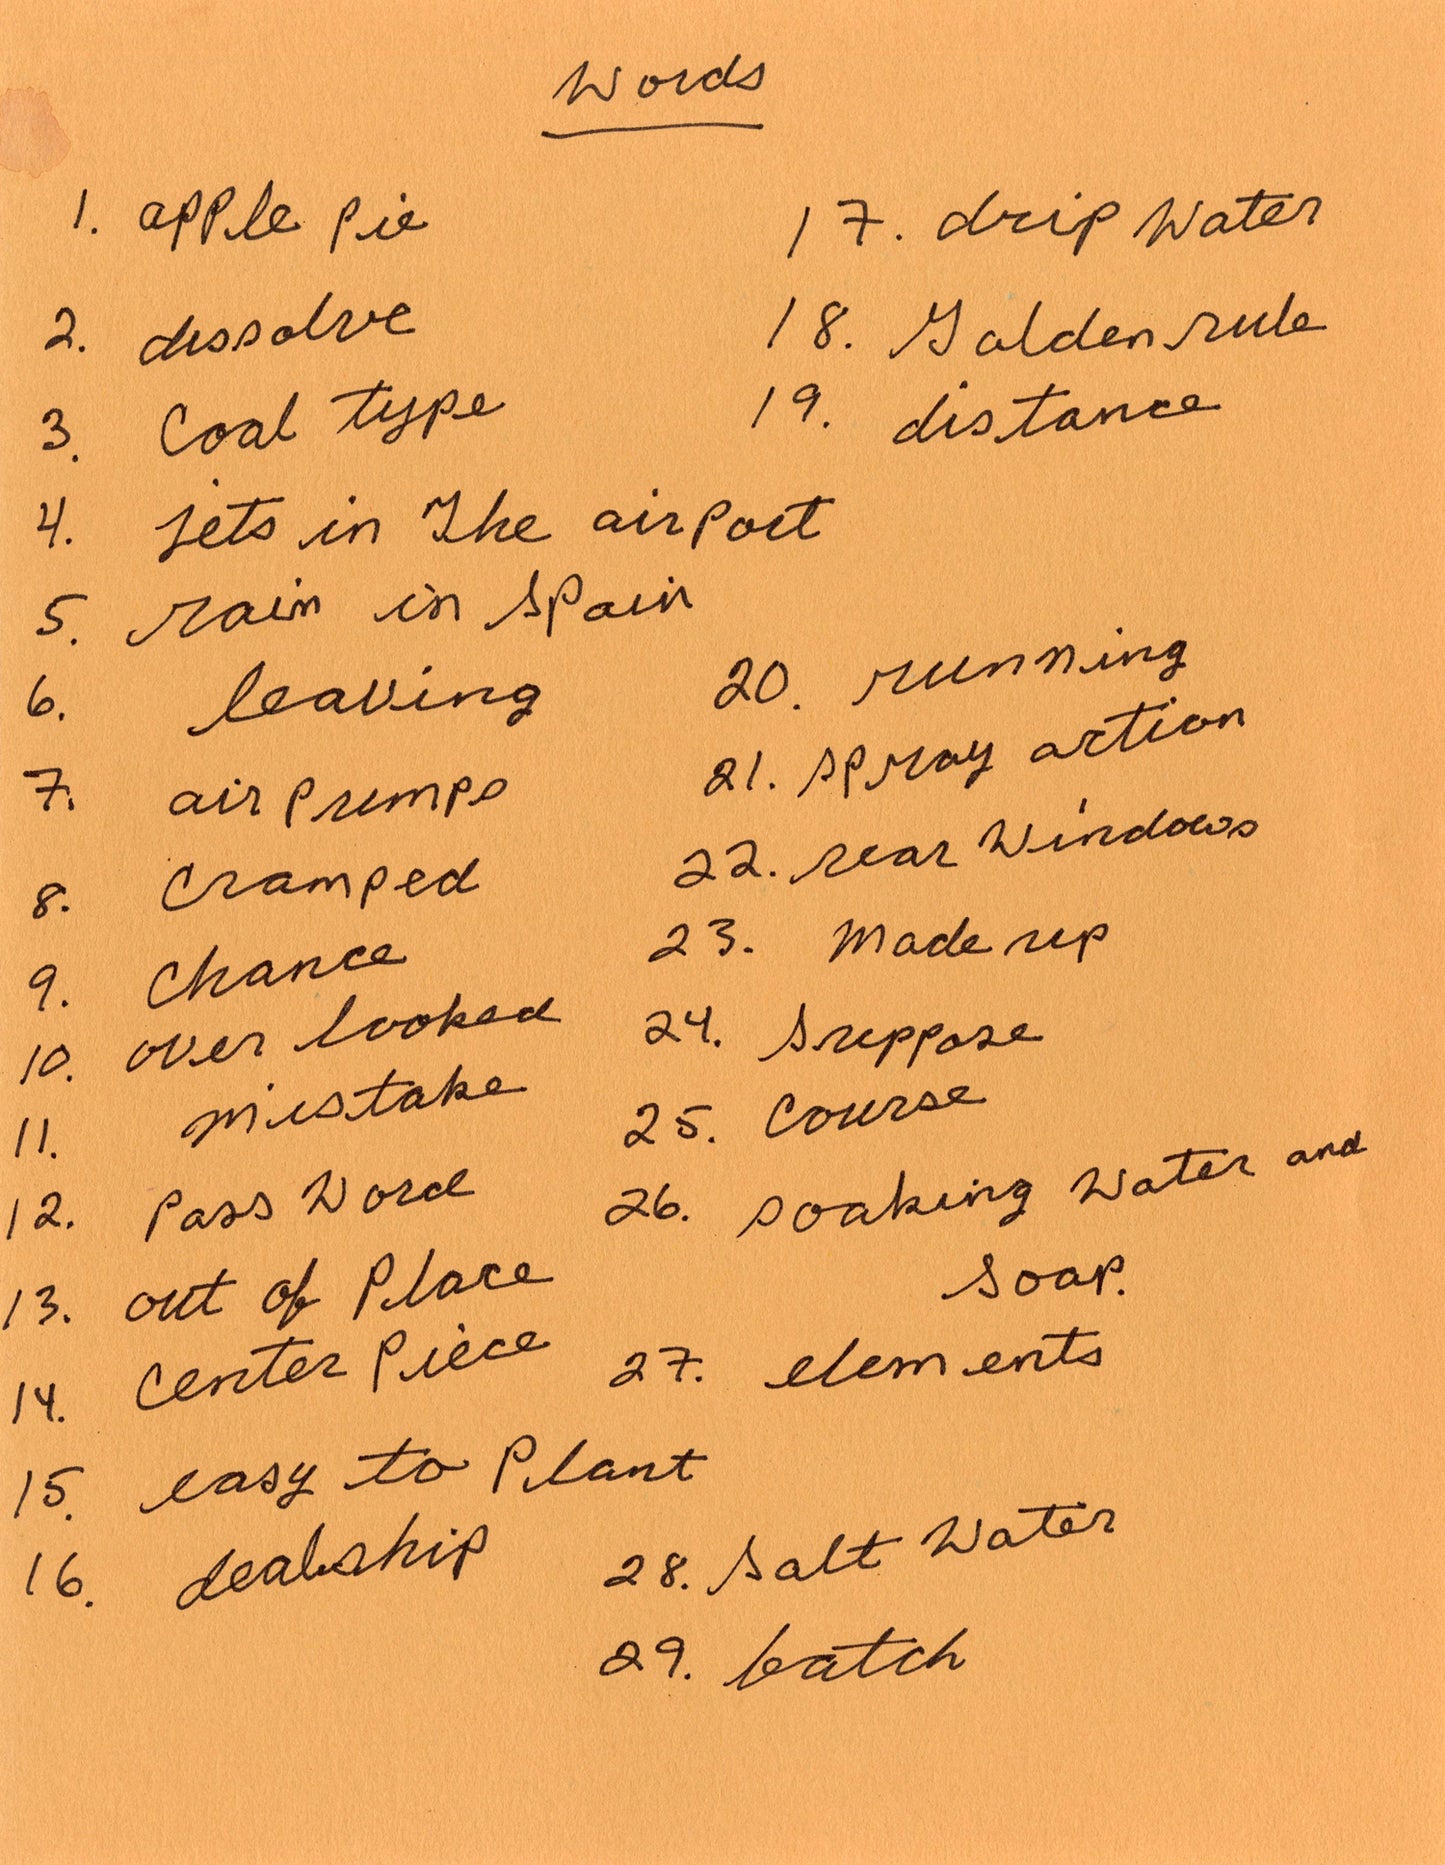 Words
1. apple pie
2. dissolve
3. Coal type
4. jets in The airport
5. rain in Spain
6. leaving
7. air pumps
8. Cramped
9. Chance
10. over looked
11. mistake
12. Pass Word
13. out of Place
14. Center Piece
15. easy to Plant
16. dealership
17. drip Water
18. Golden rule
19. distance
20. running
21. spray action
22. rear Windows
23. Made up
24. Suppose
25. Course
26. soaking Water and
soap.
27. elements
28. Salt Water
29. batch